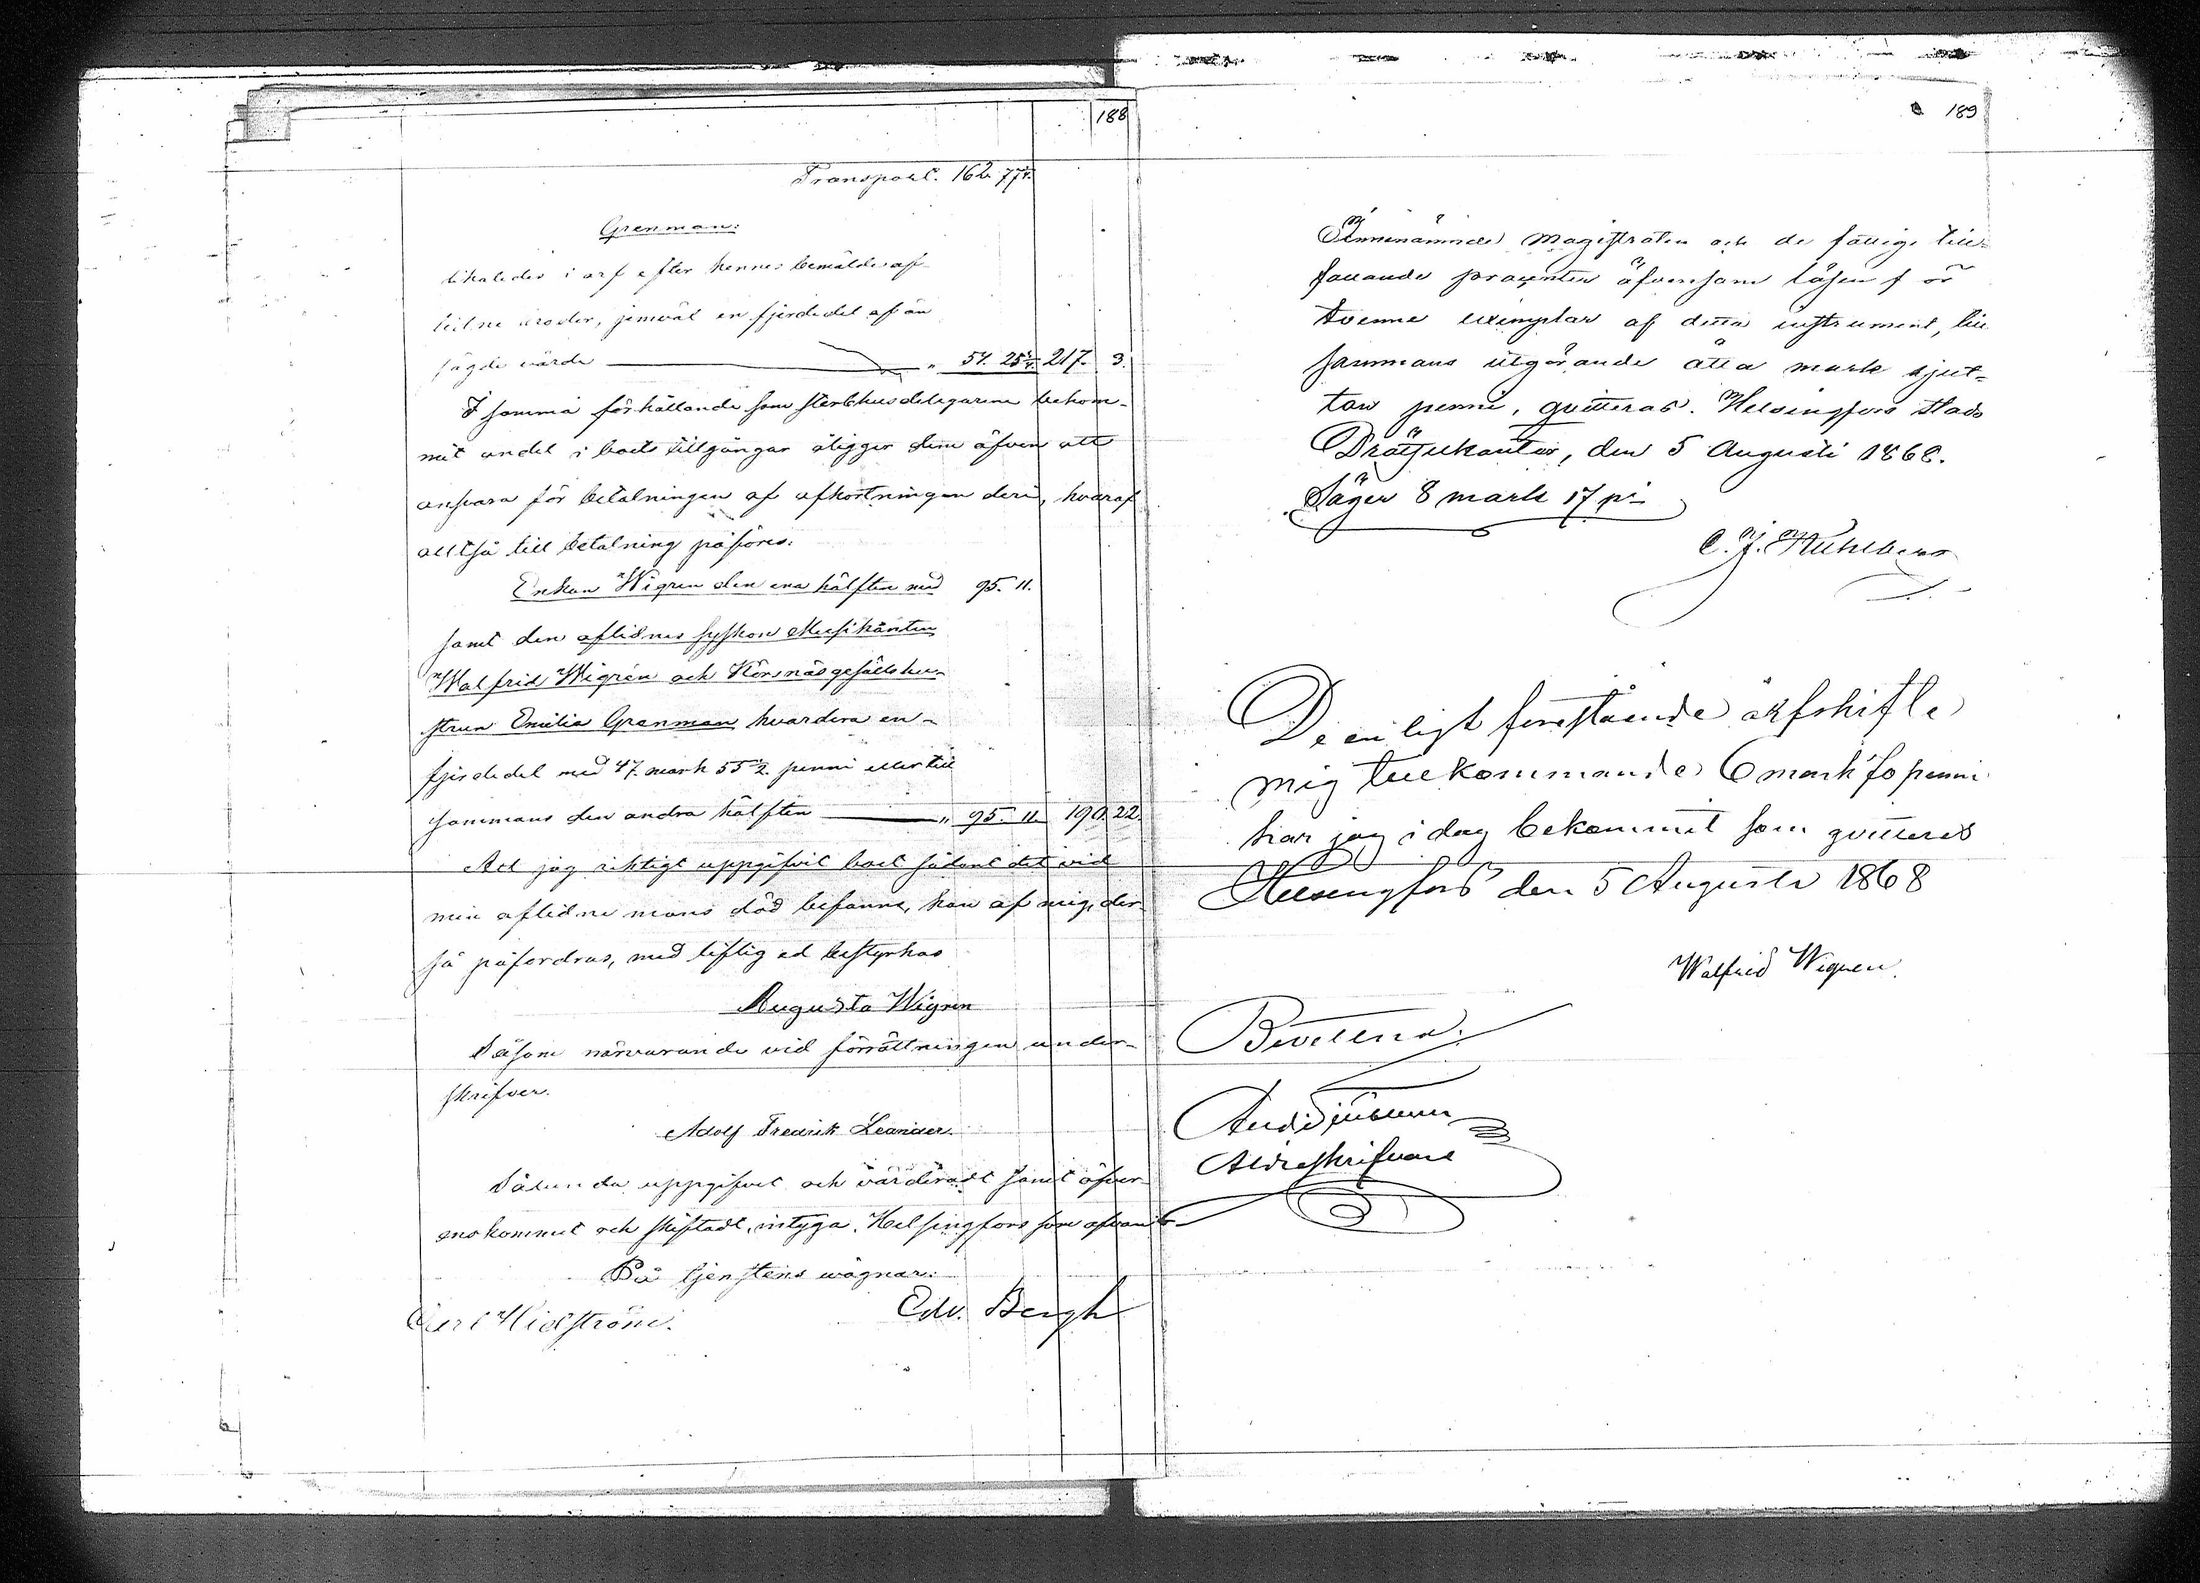 188
Transport. 162. 77¾.
Grenman:
likaledes i arf efter hennes bemälde af-
lidne broder, jemväl en fjerdedel af än
sagde värde " 54. 25¼ 217. 3.
I samma förhållande som sterbhusdelegarene bekom-
mit andel i boets tillgångar åligger dem äfven att
ansvara för betalningen af afkortningen deri, hvaraf
alltså till betalning påföres:
Enkan Wigren den ena hälften med 95. 11.
samt den aflidnes syskon Musikanten
Walfrid Wigren och Körsnärsgesällshu-
strun Emilia Grenman hvardera en
fjerdedel med 47. mark 55½. penni eller till
sammans den andra hälften " 95. 11 190. 22.
Att jag riktigt uppgifvit boet sådant det vid
min aflidne mans död befanns, kan af mig, der
så påfordras, med liflig ed bestyrkas
Augusta Wigren
Såsom närvarande vid förrättningen under-
skrifver.
Adolf Fredrik Leander.
Sålunda uppgifvet och värderadt samt öfver-
enskommit och skiftadt, intyga. Helsingfors som ofvan
På tjenstens wägnar:
Carl Widström. Edv. Bergh
189
Omnämnde Magistraten och de fattige till-
fallande procenter äfvensom lösen för
tvenne exemplar af detta instrument, till
sammans utgörande åtta mark sjut-
ton penni, qvitteras. Helsingfors Stads
Drätselkontor, den 5 Augusti 1868.
Säger 8 mark 17 pi
De enligt förestående arfskifte
mig tillkommande 6 mark 70 penni
har jag i dag bekommit som qvitteras
Helsingfors den 5 Augusti 1868
Walfrid Wigren.
Bevittna: